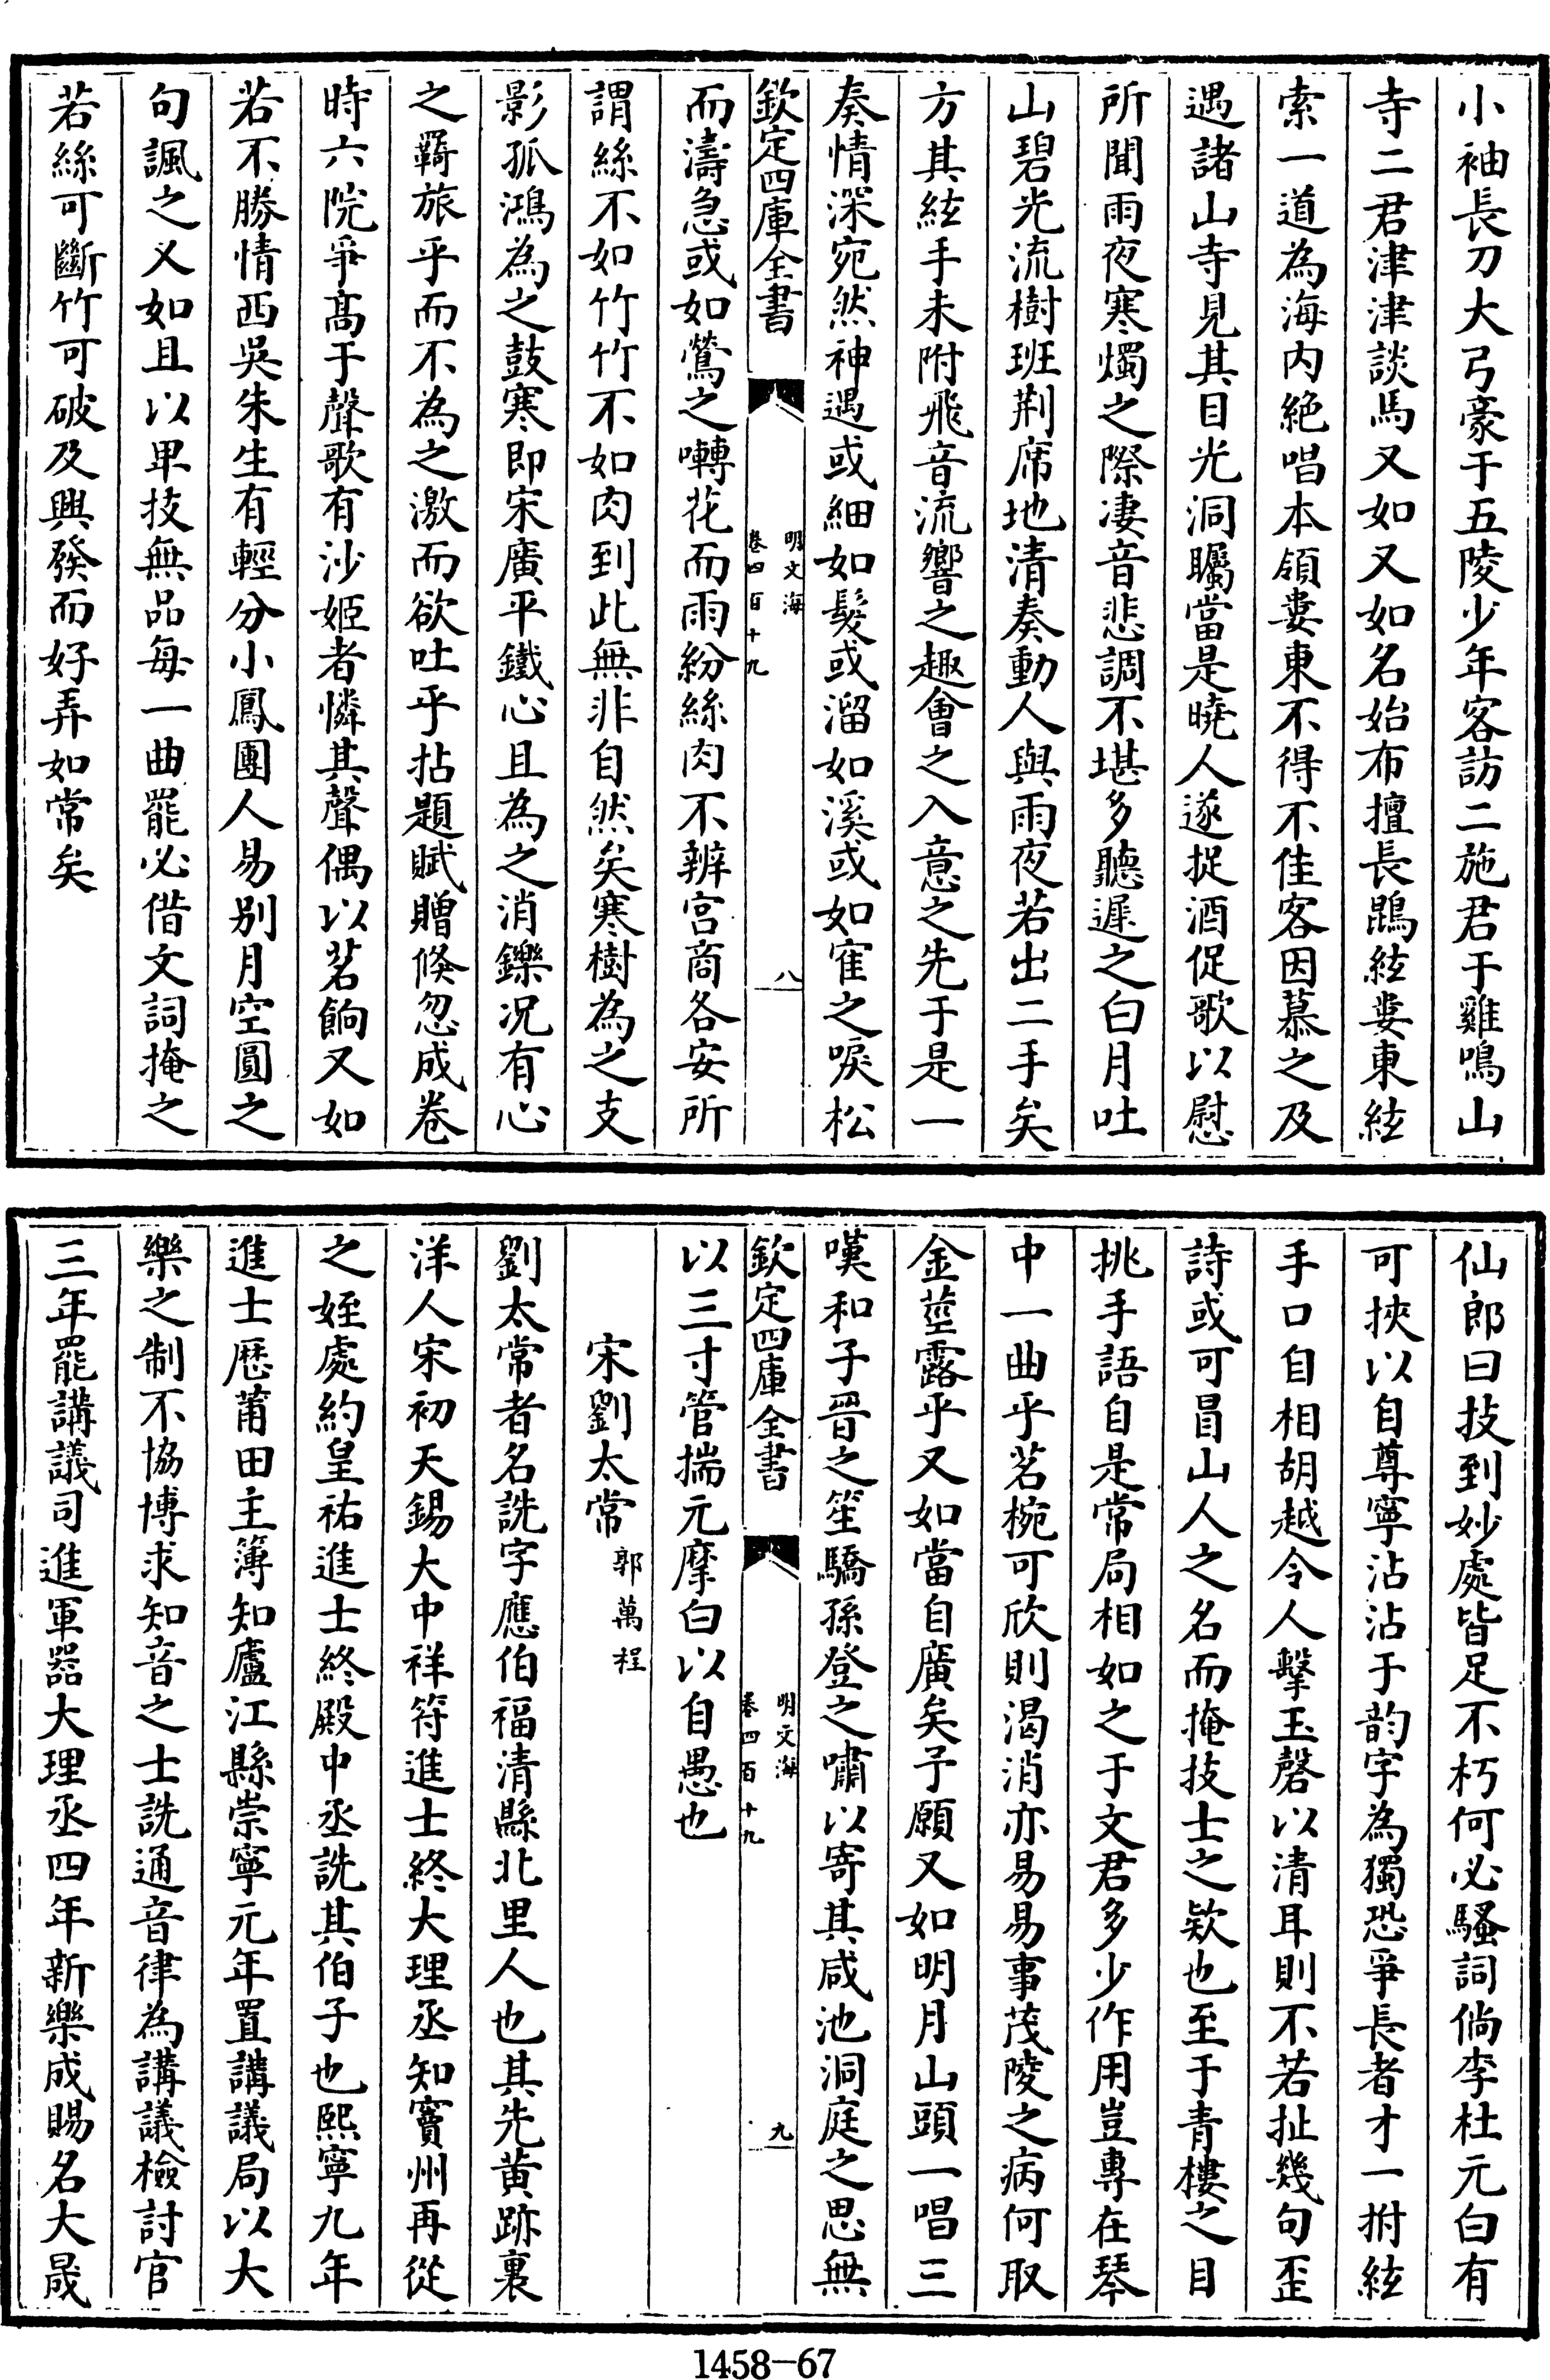 小袖長刀大弓豪于五陵少年客訪二施君于雞鳴山
寺二君津津談馬又如又如名始布擅長鵾絃婁東絃
索一道為海内絶唱本領婁東不得不佳客因慕之及
遇諸山寺見其目光洞矚當是曉人遂捉酒促歌以慰
所聞雨夜寒燭之際凄音悲調不堪多聽遲之白月吐
山碧光流樹班荆席地清奏動人與雨夜若出二手矣
方其絃手未附飛音流響之趣會之入意之先于是一
奏情深宛然神遇或細如髮或溜如溪或如寉之唳松
欽定四庫全書
明文海
卷四百十九
八
而濤急或如鶯之囀花而雨紛絲肉不辨宫商各安所
謂絲不如竹竹不如肉到此無非自然矣寒樹為之支
影孤鴻為之鼓寒即宋廣平鐵心且為之消鑠况有心
之羇旅乎而不為之激而欲吐乎拈題賦贈倏忽成卷
時六院爭髙于聲歌有沙姬者憐其聲偶以茗餉又如
若不勝情西吳朱生有輕分小鳳團人易别月空圓之
句諷之又如且以卑技無品每一曲罷必借文詞掩之
若絲可斷竹可破及興發而好弄如常矣
仙郎曰技到妙處皆足不朽何必騷詞倘李杜元白有
可挾以自尊寧沾沾于韵字為獨恐爭長者才一拊絃
手口自相胡越令人擊玉磬以清耳則不若扯幾句歪
詩或可冒山人之名而掩技士之欵也至于青樓之目
挑手語自是常局相如之于文君多少作用豈專在琴
中一曲乎茗椀可欣則渴消亦易易事茂陵之病何取
金莖露乎又如當自廣矣予願又如明月山頭一唱三
嘆和子晉之笙驕孫登之嘯以寄其咸池洞庭之思無
欽定四庫全書
明文海
卷四百十九
九
以三寸管揣元摩白以自愚也
宋劉太常 郭萬程
劉太常者名詵字應伯福清縣北里人也其先黄跡裏
洋人宋初天錫大中祥符進士終大理丞知賓州再從
之姪處約皇祐進士終殿中丞詵其伯子也熙寧九年
進士歴莆田主簿知廬江縣崇寧元年置講議局以大
樂之制不協博求知音之士詵通音律為講議檢討官
三年罷講議司進軍器大理丞四年新樂成賜名大晟
1458—67